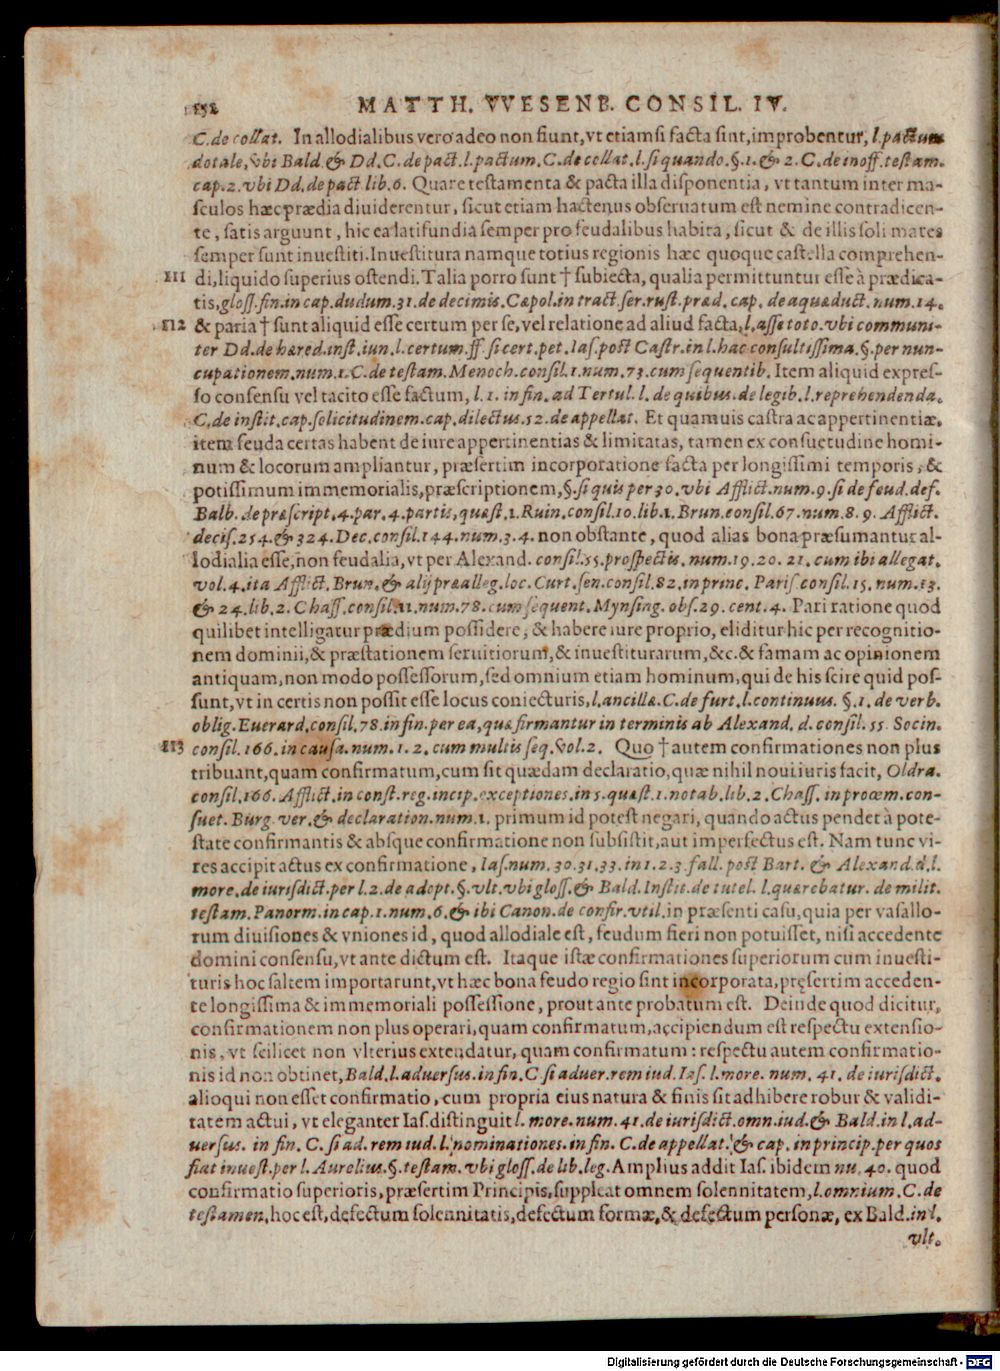 152 MATTH. VVESENB. CONSIL. IV.
C. de collat. In allodialibus vero adeo non fiunt, vt etiamsi facta sint, improbentur, l. pactum
dotale, vbi Bald. & Dd. C. de pact. l. pactum. C. de collat. l. si quando. §. 1. & 2. C. de inoff. testam.
cap. 2. vbi Dd. de pact. lib. 6. Quare testamenta & pacta illa disponentia, vt tantum inter ma-
sculos hæc prædia diuiderentur, sicut etiam hactenus obseruatum est nemine contradicen-
te, satis arguunt, hic ea latifundia semper pro feudalibus habita, sicut & de illis soli mares
semper sunt inuestiti. Inuestitura namque totius regionis hæc quoque castella comprehen-
111 di, liquido superius ostendi. Talia porro sunt † subiecta, qualia permittuntur esse à prædica-
tis, gloss. fin. in cap. dudum. 31. de decimis. Cæpol. in tract. ser. rust. præd. cap. de aquæduct. num. 14.
112 & paria † sunt aliquid esse certum per se, vel relatione ad aliud facta, l. asse toto. vbi communi-
ter Dd. de hæred. inst. iun. l. certum. ff. si cert. pet. Ias. post Castr. in l. hac consultissima. §. per nun-
cupationem. num. 1. C. de testam. Menoch. consil. 1. num. 73. cum sequentib. Item aliquid expres-
so consensu vel tacito esse factum, l. 1. in fin. ad Tertul. l. de quibus. de legib. l. reprehendenda.
C. de instit. cap. solicitudinem. cap. dilectus. 52. de appellat. Et quamuis castra ac appertinentiæ,
item feuda certas habent de iure appertinentias & limitatas, tamen ex consuetudine homi-
num & locorum ampliantur, præsertim incorporatione facta per longissimi temporis, &
potissimum immemorialis, præscriptionem, §. si quis per 30. vbi Afflict. num. 9. si de feud. def.
Balb. de præscript. 4. par. 4. partis, quæst. 1. Ruin. consil. 10. lib. 1. Brun. consil. 67. num. 8. 9. Afflict.
decis. 254. & 324. Dec. consil. 144. num. 3. 4. non obstante, quod alias bona præsumantur al-
lodialia esse, non feudalia, vt per Alexand. consil. 55. prospectis. num. 19. 20. 21. cum ibi allegat.
vol. 4. ita Afflict. Brun. & alij præalleg. loc. Curt. sen. consil. 82. in princ. Paris. consil. 15. num. 13.
& 24. lib. 2. Chass. consil. 11. num. 78. cum sequent. Mynsing. obs. 29. cent. 4. Pari ratione quod
quilibet intelligatur prædium possidere, & habere iure proprio, eliditur hic per recognitio-
nem dominii, & præstationem seruitiorum, & inuestiturarum, &c. & famam ac opinionem
antiquam, non modo possessorum, sed omnium etiam hominum, qui de his scire quid pos-
sunt, vt in certis non possit esse locus coniecturis, l. ancillæ. C. de furt. l. continuus. §. 1. de verb.
oblig. Euerard. consil. 78. in fin. per ea, quæ firmantur in terminis ab Alexand. d. consil. 55. Socin.
113 consil. 166. in causa. num. 1. 2. cum multis seq. vol. 2. Quo † autem confirmationes non plus
tribuant, quam confirmatum, cum sit quædam declaratio, quæ nihil noui iuris facit, Oldra.
consil. 166. Afflict. in const. reg. incip. exceptiones. in 5. quæst. 1. notab. lib. 2. Chass. in proœm. con-
suet. Burg. ver. & declaration. num. 1. primum id potest negari, quando actus pendet à pote-
state confirmantis & absque confirmatione non subsistit, aut imperfectus est. Nam tunc vi-
res accipit actus ex confirmatione, Ias. num. 30. 31. 33. in 1. 2. 3. fall. post Bart. & Alexand. d. l.
more. de iurisdict. per l. 2. de adopt. §. vlt. vbi gloss. & Bald. Instit. de tutel. l. quærebatur. de milit.
testam. Panorm. in cap. 1. num. 6. & ibi Canon. de confir. vtil. in præsenti casu, quia per vasallo-
rum diuisiones & vniones id, quod allodiale est, feudum fieri non potuisset, nisi accedente
domini consensu, vt ante dictum est. Itaque istæ confirmationes superiorum cum inuesti-
turis hoc saltem importarunt, vt hæc bona feudo regio sint incorporata, pręsertim acceden-
te longissima & immemoriali possessione, prout ante probatum est. Deinde quod dicitur,
confirmationem non plus operari, quam confirmatum, accipiendum est respectu extensio-
nis, vt scilicet non vlterius extendatur, quam confirmatum: respectu autem confirmatio-
nis id non obtinet, Bald. l. aduersus. in fin. C. si aduer. rem iud. Ias. l. more. num. 41. de iurisdict.
alioqui non esset confirmatio, cum propria eius natura & finis sit adhibere robur & validi-
tatem actui, vt eleganter Ias. distinguit l. more. num. 41. de iurisdict. omn. iud. & Bald. in l. ad-
uersus. in fin. C. si ad. rem iud. l. nominationes. in fin. C. de appellat. & cap. in princip. per quos
fiat inuest. per l. Aurelius. §. testam. vbi gloss. de lib. leg. Amplius addit Ias. ibidem nu. 40. quod
confirmatio superioris, præsertim Principis, suppleat omnem solennitatem, l. omnium. C. de
testamen. hoc est, defectum solennitatis, defectum formæ, & defectum personæ, ex Bald. in l.
vlt.
Digitalisierung gefördert durch die Deutsche Forschungsgemeinschaft - DFG